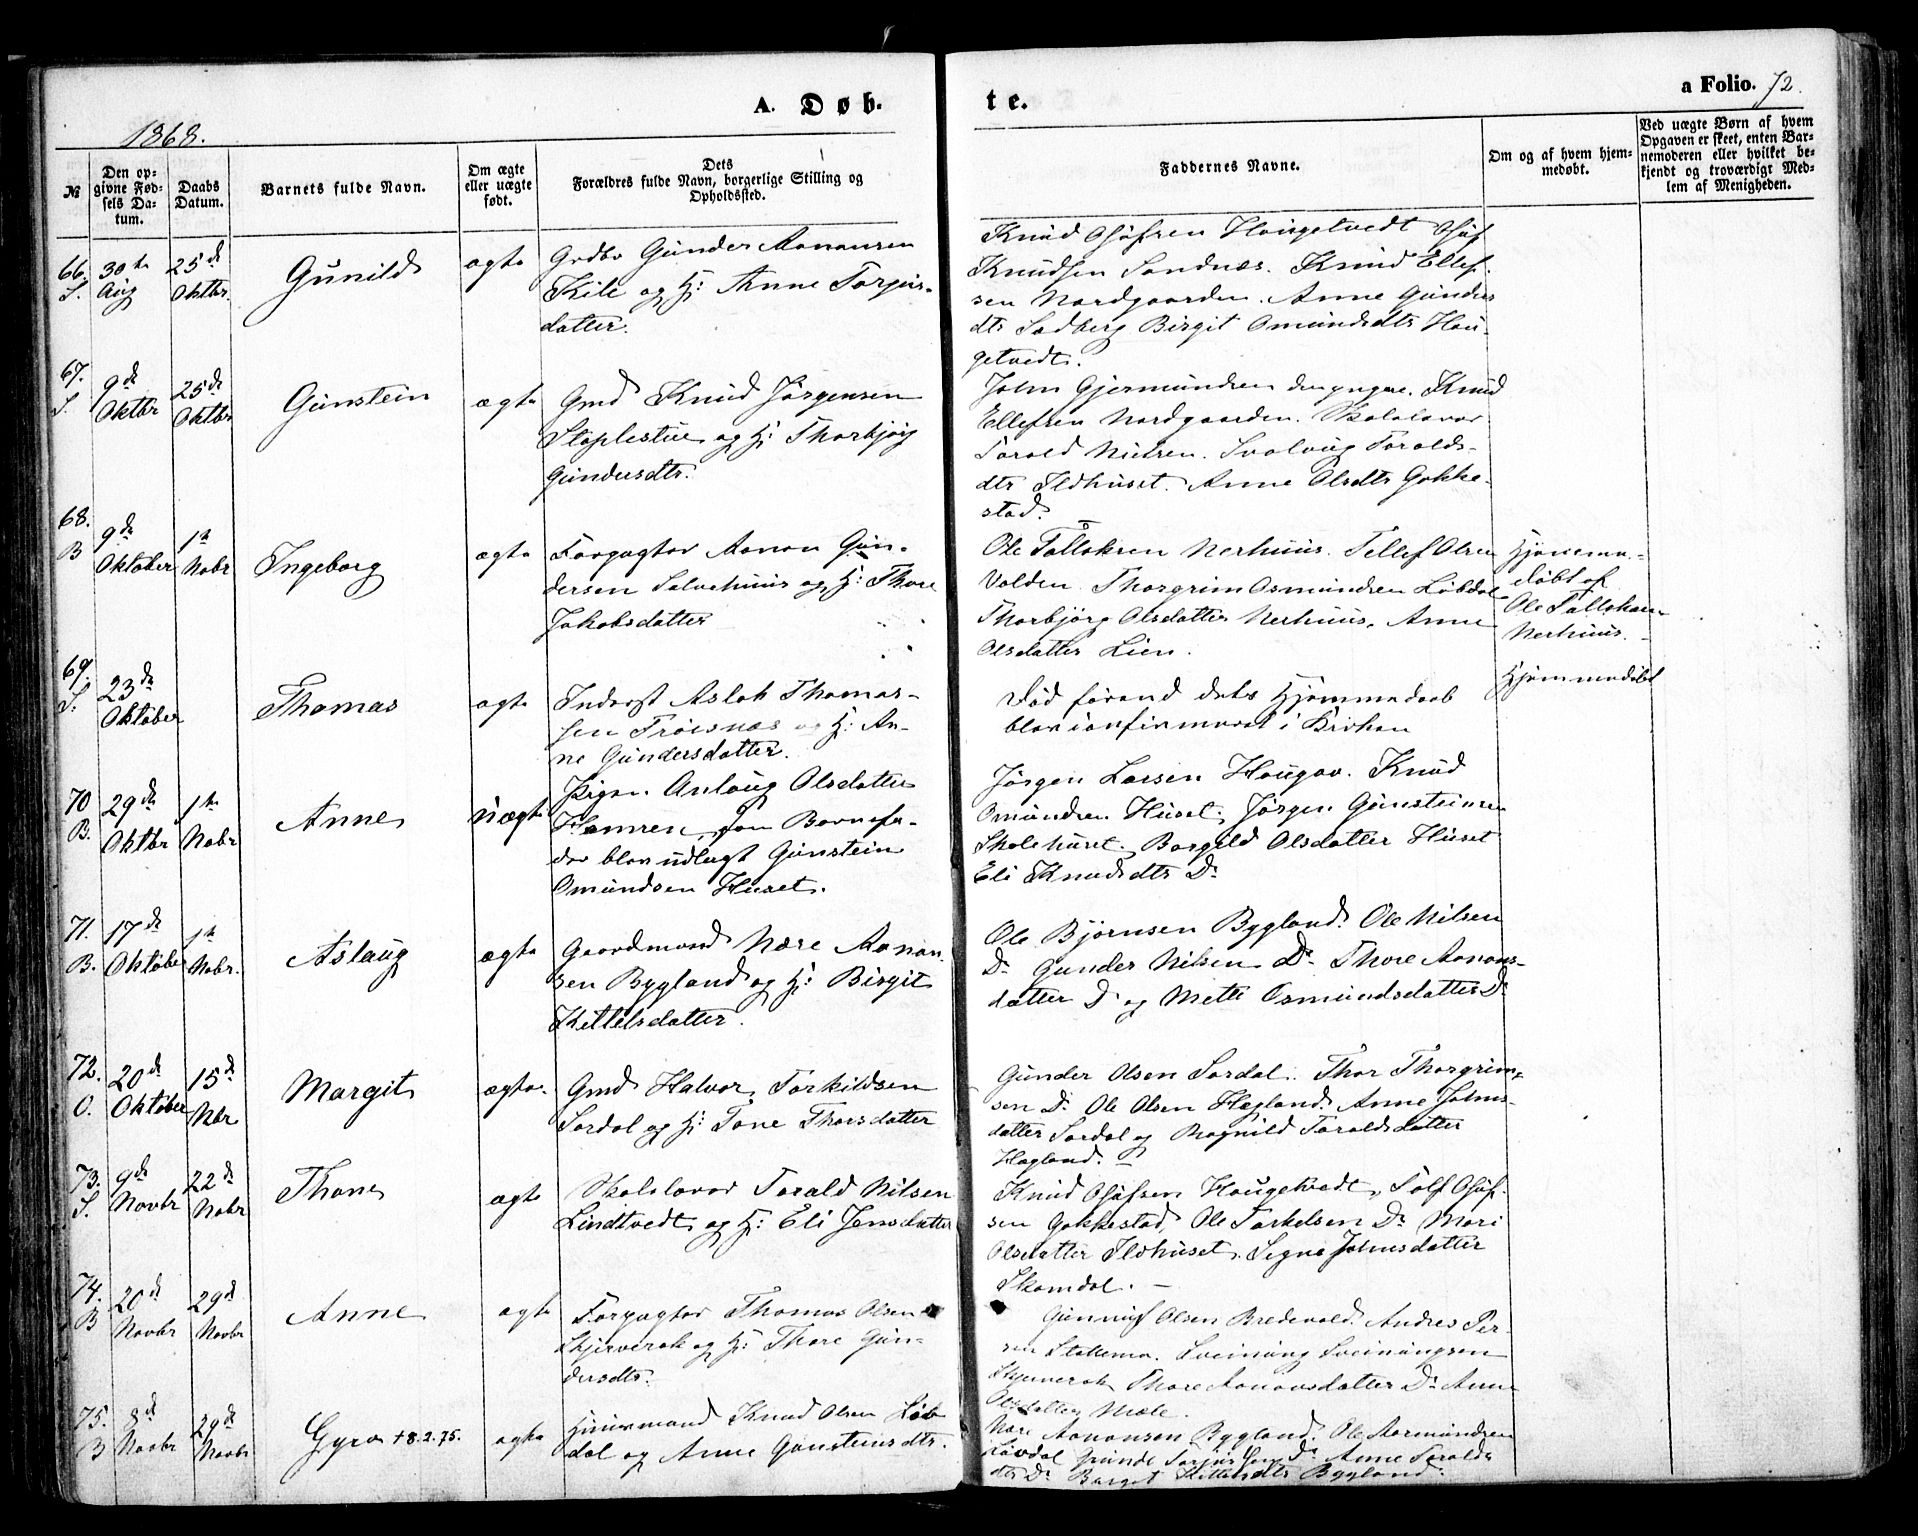 A. Døb-
te.
a Folio. 72.
1868.
№
Den op-
givne Fød-
sels Da-
tum.
Daabs
Datum.
Barnets fulde Navn.
Om ægte
eller uægte
født.
Dets
Forældres fulde Navn, borgerlige Stilling og
Opholdssted.
Faddernes Navne.
Om og af hvem hjem-
medøbt.
Ved uægte Børn af hvem
Opgaven er skeet, enten Bar-
nemoderen eller hvilket be-
kjendt og troværdigt Med-
lem af Menigheden.
66.
S.
30te
Aug
25de
Oktbr.
Gunild
ægte
Grdbr Gunder Aanonsen
Kile og H: Anne Torjus-
datter.
Knud Osufsen Hougetvedt Osuf
Knudsen Sandnæs. Knud Ellef-
sen Nordgaarden. Anne Gunders
dtr Sodberg Birgit Omundsdtr Hou-
getvedt.
67.
S.
9de
Oktbr
25de
Oktbr
Gunstein
ægte
Gmd Knud Jørgensen
Staplestue og H: Thorbjørg
Gundersdtr.
John Gjermundsen den yngre. Knud
Ellefsen Nordgaarden. Skolelærer
Torald Nielsen. Svalaug Toralds-
dtr Ildhuset. Anne Olsdtr Gokke-
stad.
68.
B
9de
Oktober
1te
Nobr
Ingeborg
ægte
Forpagter Aanon Gun-
dersen Salvehuus og H: Thore
Jakobsdatter
Ole Talleksen Nerhuus. Tellef Olsen
Valden. Thorgrim Osmundsen Løbdal
Thorbjørg Olsdatter Nerhuus. Anne
Olsdatter Lien.
Hjemme-
døbt af
Ole Talleksen
Nerhuus.
69.
S.
23de
Oktober
Thomas
ægte
Inderst Aslak Thomas-
sen Frøisnæs og H: An-
ne Gundersdatter.
Død førend dets Hjemmedaab
blev confirmeret i Kirken
Hjemmedøbt
70
B.
29de
Oktbr
1te
Nobr
Anne
uægte
Pigen Anlaug Olsdatter
Hamren, som Barnefa-
der blev udlagt Gunstein
Omundsen Huset.
Jørgen Larsen Hougen. Knud
Omundsen Huset, Jørgen Gunsteinsen
Skolehuset. Borgild Olsdatter Huset
Eli Knudsdtr Do
71.
B.
17de
Oktober
1te
Nobr.
Aslaug
ægte
Gaardmand Nære Aanon-
sen Bygland og H: Birgit
Kittelsdatter.
Ole Bjørnsen Bygland. Ole Nilsen
Do Gunder Nilsen Do Thore Aanons-
datter Do og Mette Osmundsdatter Do
72.
O.
20de
Oktober
15de
Nbr
Margit
ægte.
Gmd Halvor Torkildsen
Sordal og H: Tone Thorsdatter
Gunder Olsen Sordal. Thor Thorgrim-
sen Do Ole Olsen Hegland. Anne Johns-
datter Sordal og Ragnild Toraldsdatter
Hegland.
73.
S.
9de
Novbr
22de
Nobr
Thone
ægte
Skolelærer Torald Nilsen
Lindtvedt og H: Eli Jensdatter
Knud Osufsen Hougetvedt, Tolf Osuf-
sen Gokkestad, Ole Torkelsen Do Mari
Olsdatter Ildhuset. Signe Johnsdatter
Skomdal.
74.
B
20de
Novbr
29de
Novbr
Anne
ægte
Forpagter Thomas Olsen
Skjerverak og H: Thore Gun-
dersdtr.
Gunnuf Olsen Bredevold. Andres Per-
sen Stallemo. Sveinung Sveinungsen
Skjeverak Thore Aanonsdatter Do Anne
Olsdatter Mæle.
75.
B
8de
Novbr
29de
Novbr
Gyro +8.2.75.
ægte
Huusmand Knud Olsen Løb
dal og Anne Gunsteinsdtr.
Nære Aanonsen Bygland. Ole Aasmundsen
Løvdal Gunde Torjussen Do Anne Toralds
dtr Do Borget Kittelsdtr Bygland.